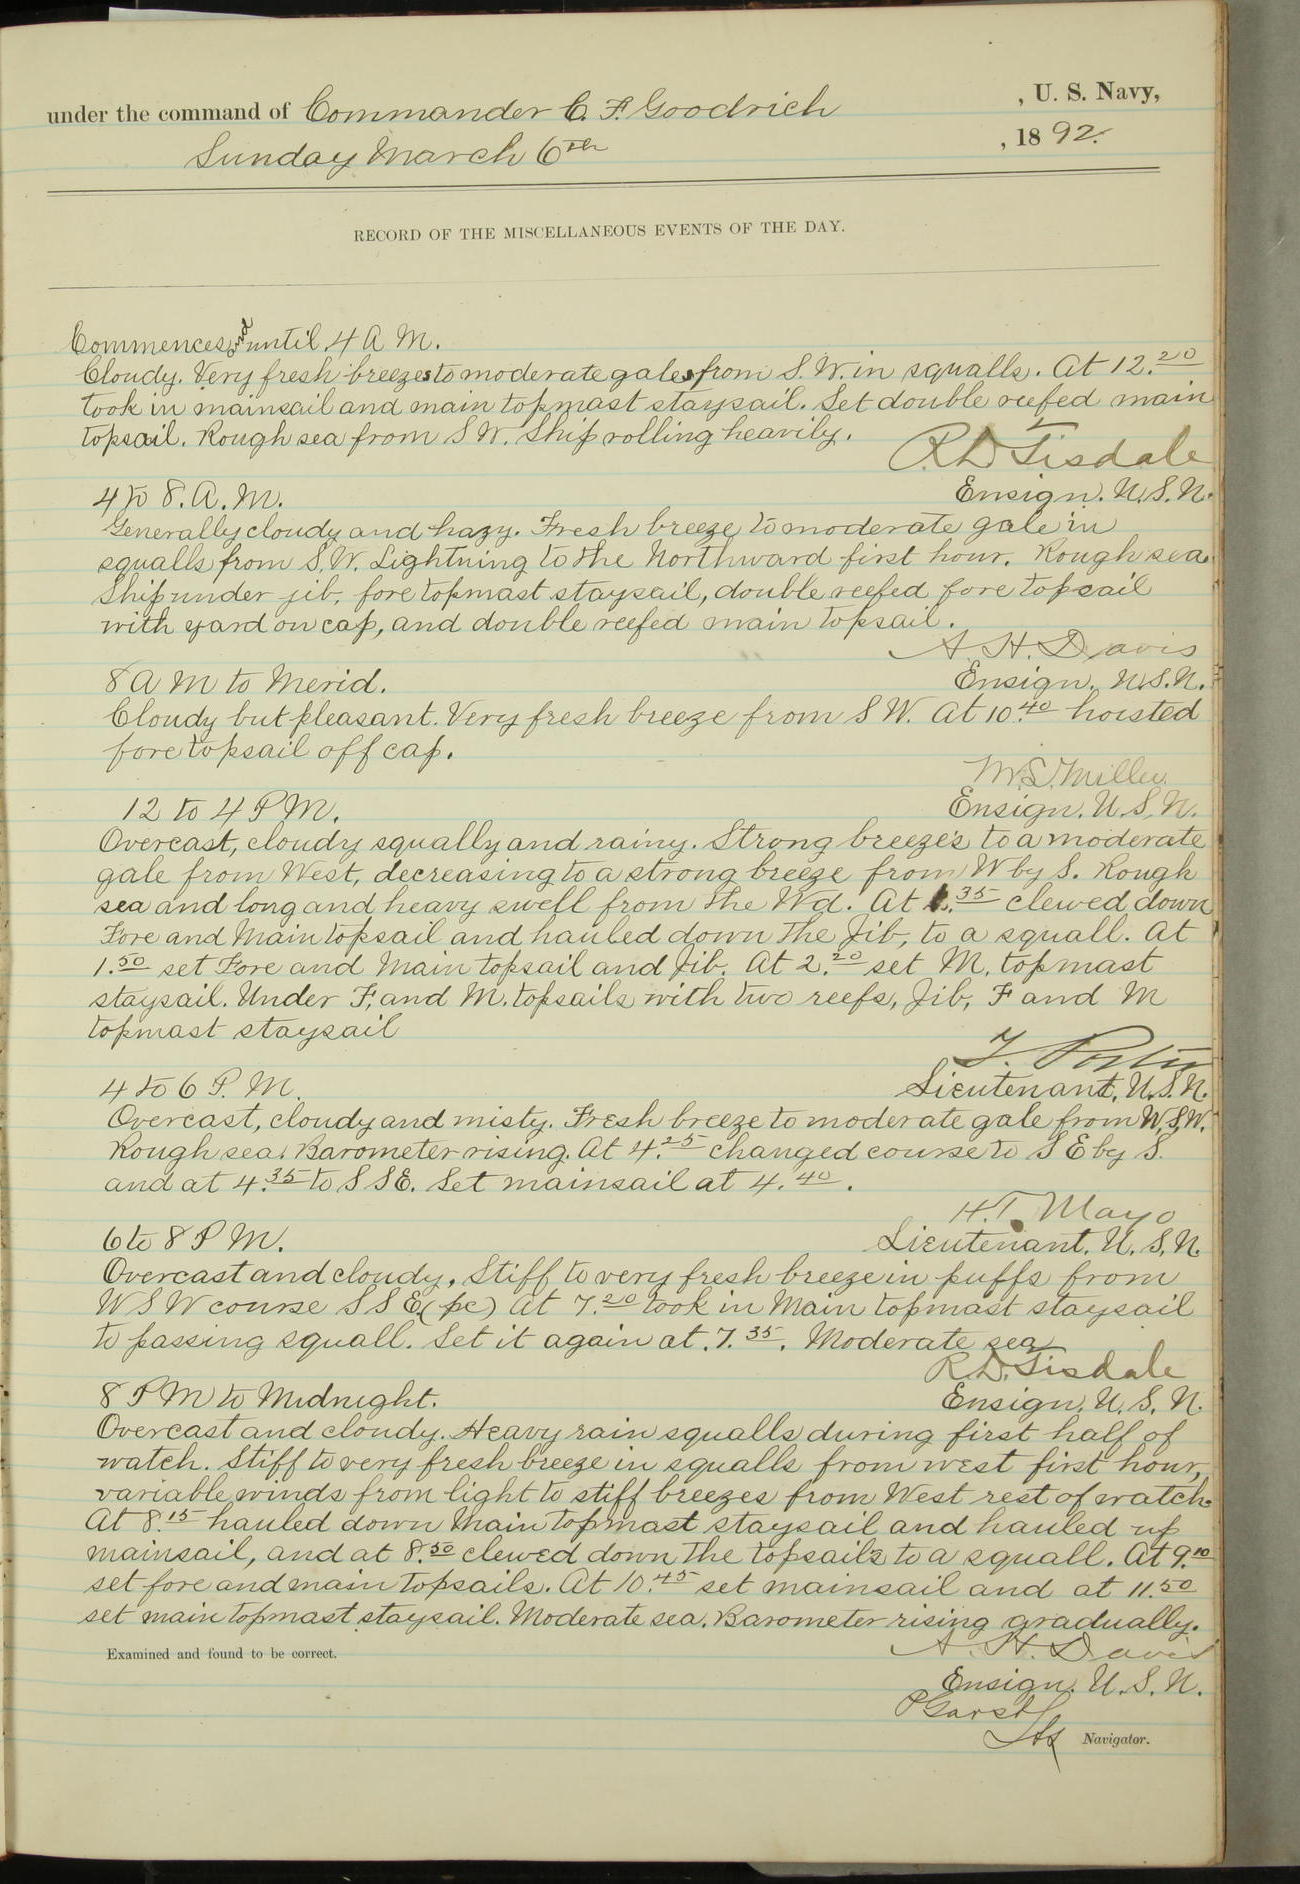 under the command of Commander C. F. Goodrich , U. S. Navy,
Sunday March 6th , 1892.
RECORD OF THE MISCELLANEOUS EVENTS OF THE DAY.
Commences and until 4 A M.
Cloudy. Very fresh breezes to moderate gales from S. W. in squalls. At 12.20
took in mainsail and main topmast staysail. Set double reefed main
topsail. Rough sea from S W. Ship rolling heavily.
R D Tisdale
Ensign. U.S.N.
4 to 8. A. M.
Generally cloudy and hazy. Fresh breeze to moderate gale in
squalls from S.W. Lightning to the Northward first hour. Rough sea.
Ship under jib, fore topmast staysail, double reefed fore topsail
with yard on cap, and double reefed main topsail.
A. H. Davis
Ensign. U.S.N.
8 A M to Merid.
Cloudy but pleasant. Very fresh breeze from S W. At 10.40 hoisted
fore topsail off cap.
Miller
Ensign. U. S. N.
12 to 4 P M.
Overcast, cloudy squally and rainy. Strong breezes to a moderate
gale from West, decreasing to a strong breeze from W by S. Rough
sea and long and heavy swell from the Wd. At 1.35 clewed down
Fore and Main topsail and hauled down the Jib, to a squall. At
1.50 set Fore and Main topsail and Jib. At 2.20 set M. topmast
staysail. Under F. and M. topsails with two reefs, Jib, F and M
topmast staysail
Lieutenant, U.S.N.
4 to 6 P. M.
Overcast, cloudy and misty. Fresh breeze to moderate gale from W.S.W.
Rough sea. Barometer rising. At 4.25 changed course to S E by S.
and at 4.35 to S S E. Set mainsail at 4.40.
H.T. Mayo
Lieutenant. U. S. N.
6 to 8 P M.
Overcast and cloudy. Stiff to very fresh breeze in puffs from
W S W course S S E (pc) At 7.20 took in Main topmast staysail
to passing squall. Set it again at 7.35. Moderate sea
R.D. Tisdale
Ensign. U. S. N.
8 P M to Midnight.
Overcast and cloudy. Heavy rain squalls during first half of
watch. Stiff to very fresh breeze in squalls from west first hour,
variable winds from light to stiff breezes from West rest of watch.
At 8.15 hauled down Main topmast staysail and hauled up
mainsail, and at 8.50 clewed down the topsails to a squall. At 9.10
set fore and main topsails. At 10.45 set mainsail and at 11.50
set main topmast staysail. Moderate sea. Barometer rising gradually.
Examined and found to be correct.
A. H. Davis
Ensign. U. S. N.
P Garst
Navigator.